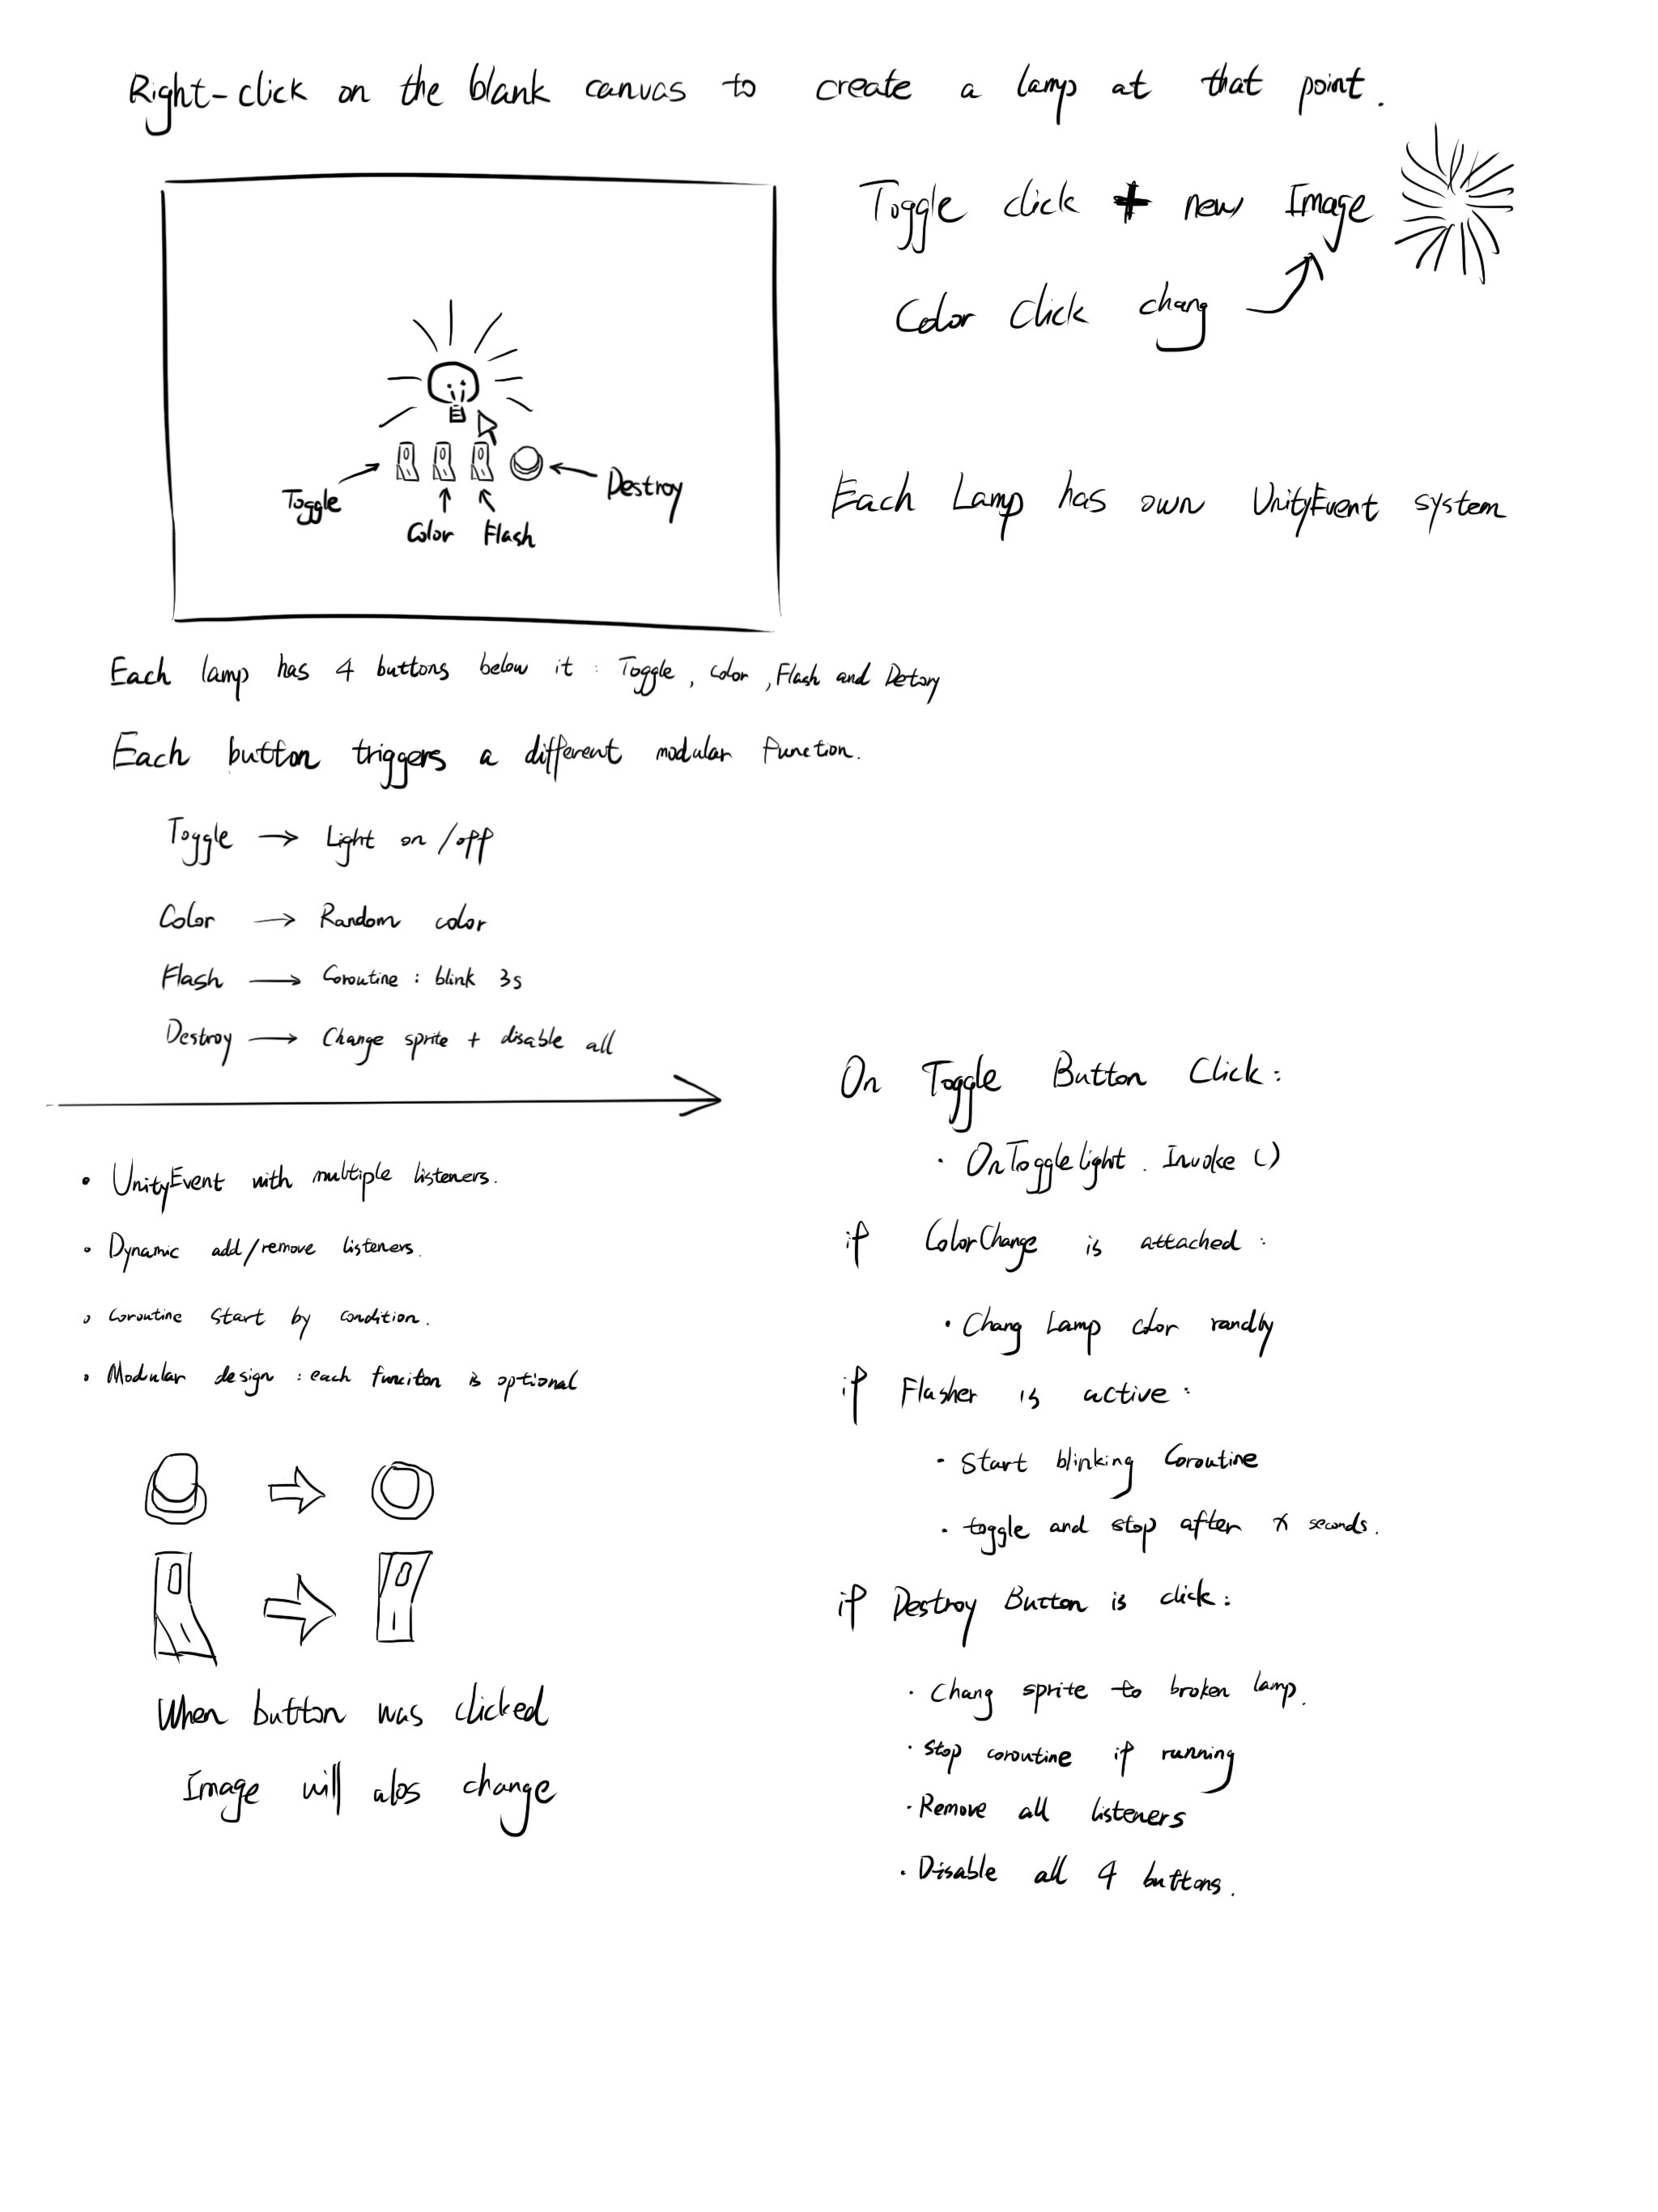 Right-click on the blank canvas to create a lamp at that point.
Toggle click + new Image
Color Click chang
Toggle
Color
Flash
Destroy
Each Lamp has own UnityEvent system
Each lamp has 4 buttons below it : Toggle, Color, Flash and Detory
Each button triggers a different modular function.
Toggle → Light on /off
Color → Random color
Flash → Coroutine : blink 3s
Destroy → Change sprite + disable all
• UnityEvent with multiple listeners.
• Dynamic add/remove listeners.
• Coroutine Start by condition.
• Modular design : each funciton is optional
When button was clicked
Image will albs change
On Toggle Button Click:
• OnTogglelight . Invoke ()
if ColorChange is attached :
• Chang Lamp color randby
if Flasher is active :
• Start blinking Coroutine
• toggle and stop after x seconds.
if Destroy Button is click :
• Chang sprite to broken lamp.
• Stop coroutine if running
• Remove all listeners
• Disable all 4 buttons.